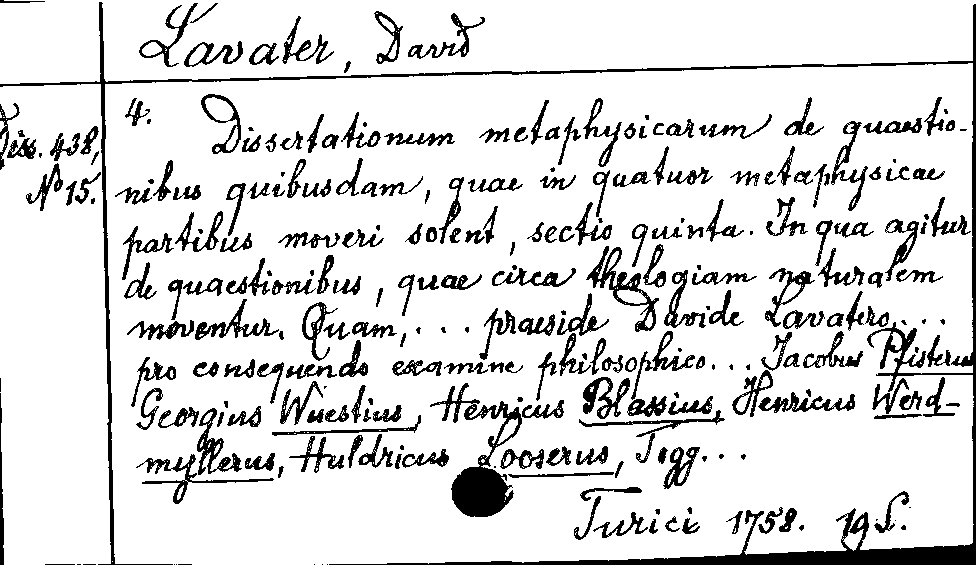 Lavater, David
Diss. 438,
No 15.
4. Dissertationum metaphysicarum de quaestio-
nibus quibusdam, quae in quatuor metaphysicae
partibus moveri solent, sectio quinta. In qua agitur
de quaestionibus, quae circa theologiam naturalem
moventur. Quam, ... praeside Davide Lavatero, ...
pro consequendo examine philosophico ... Jacobus Pfisterus
Georgius Wuestius, Henricus Blassius, Henricus Werd-
myllerus, Huldricus Looserus, Togg ...
Turici 1758. 19 S.